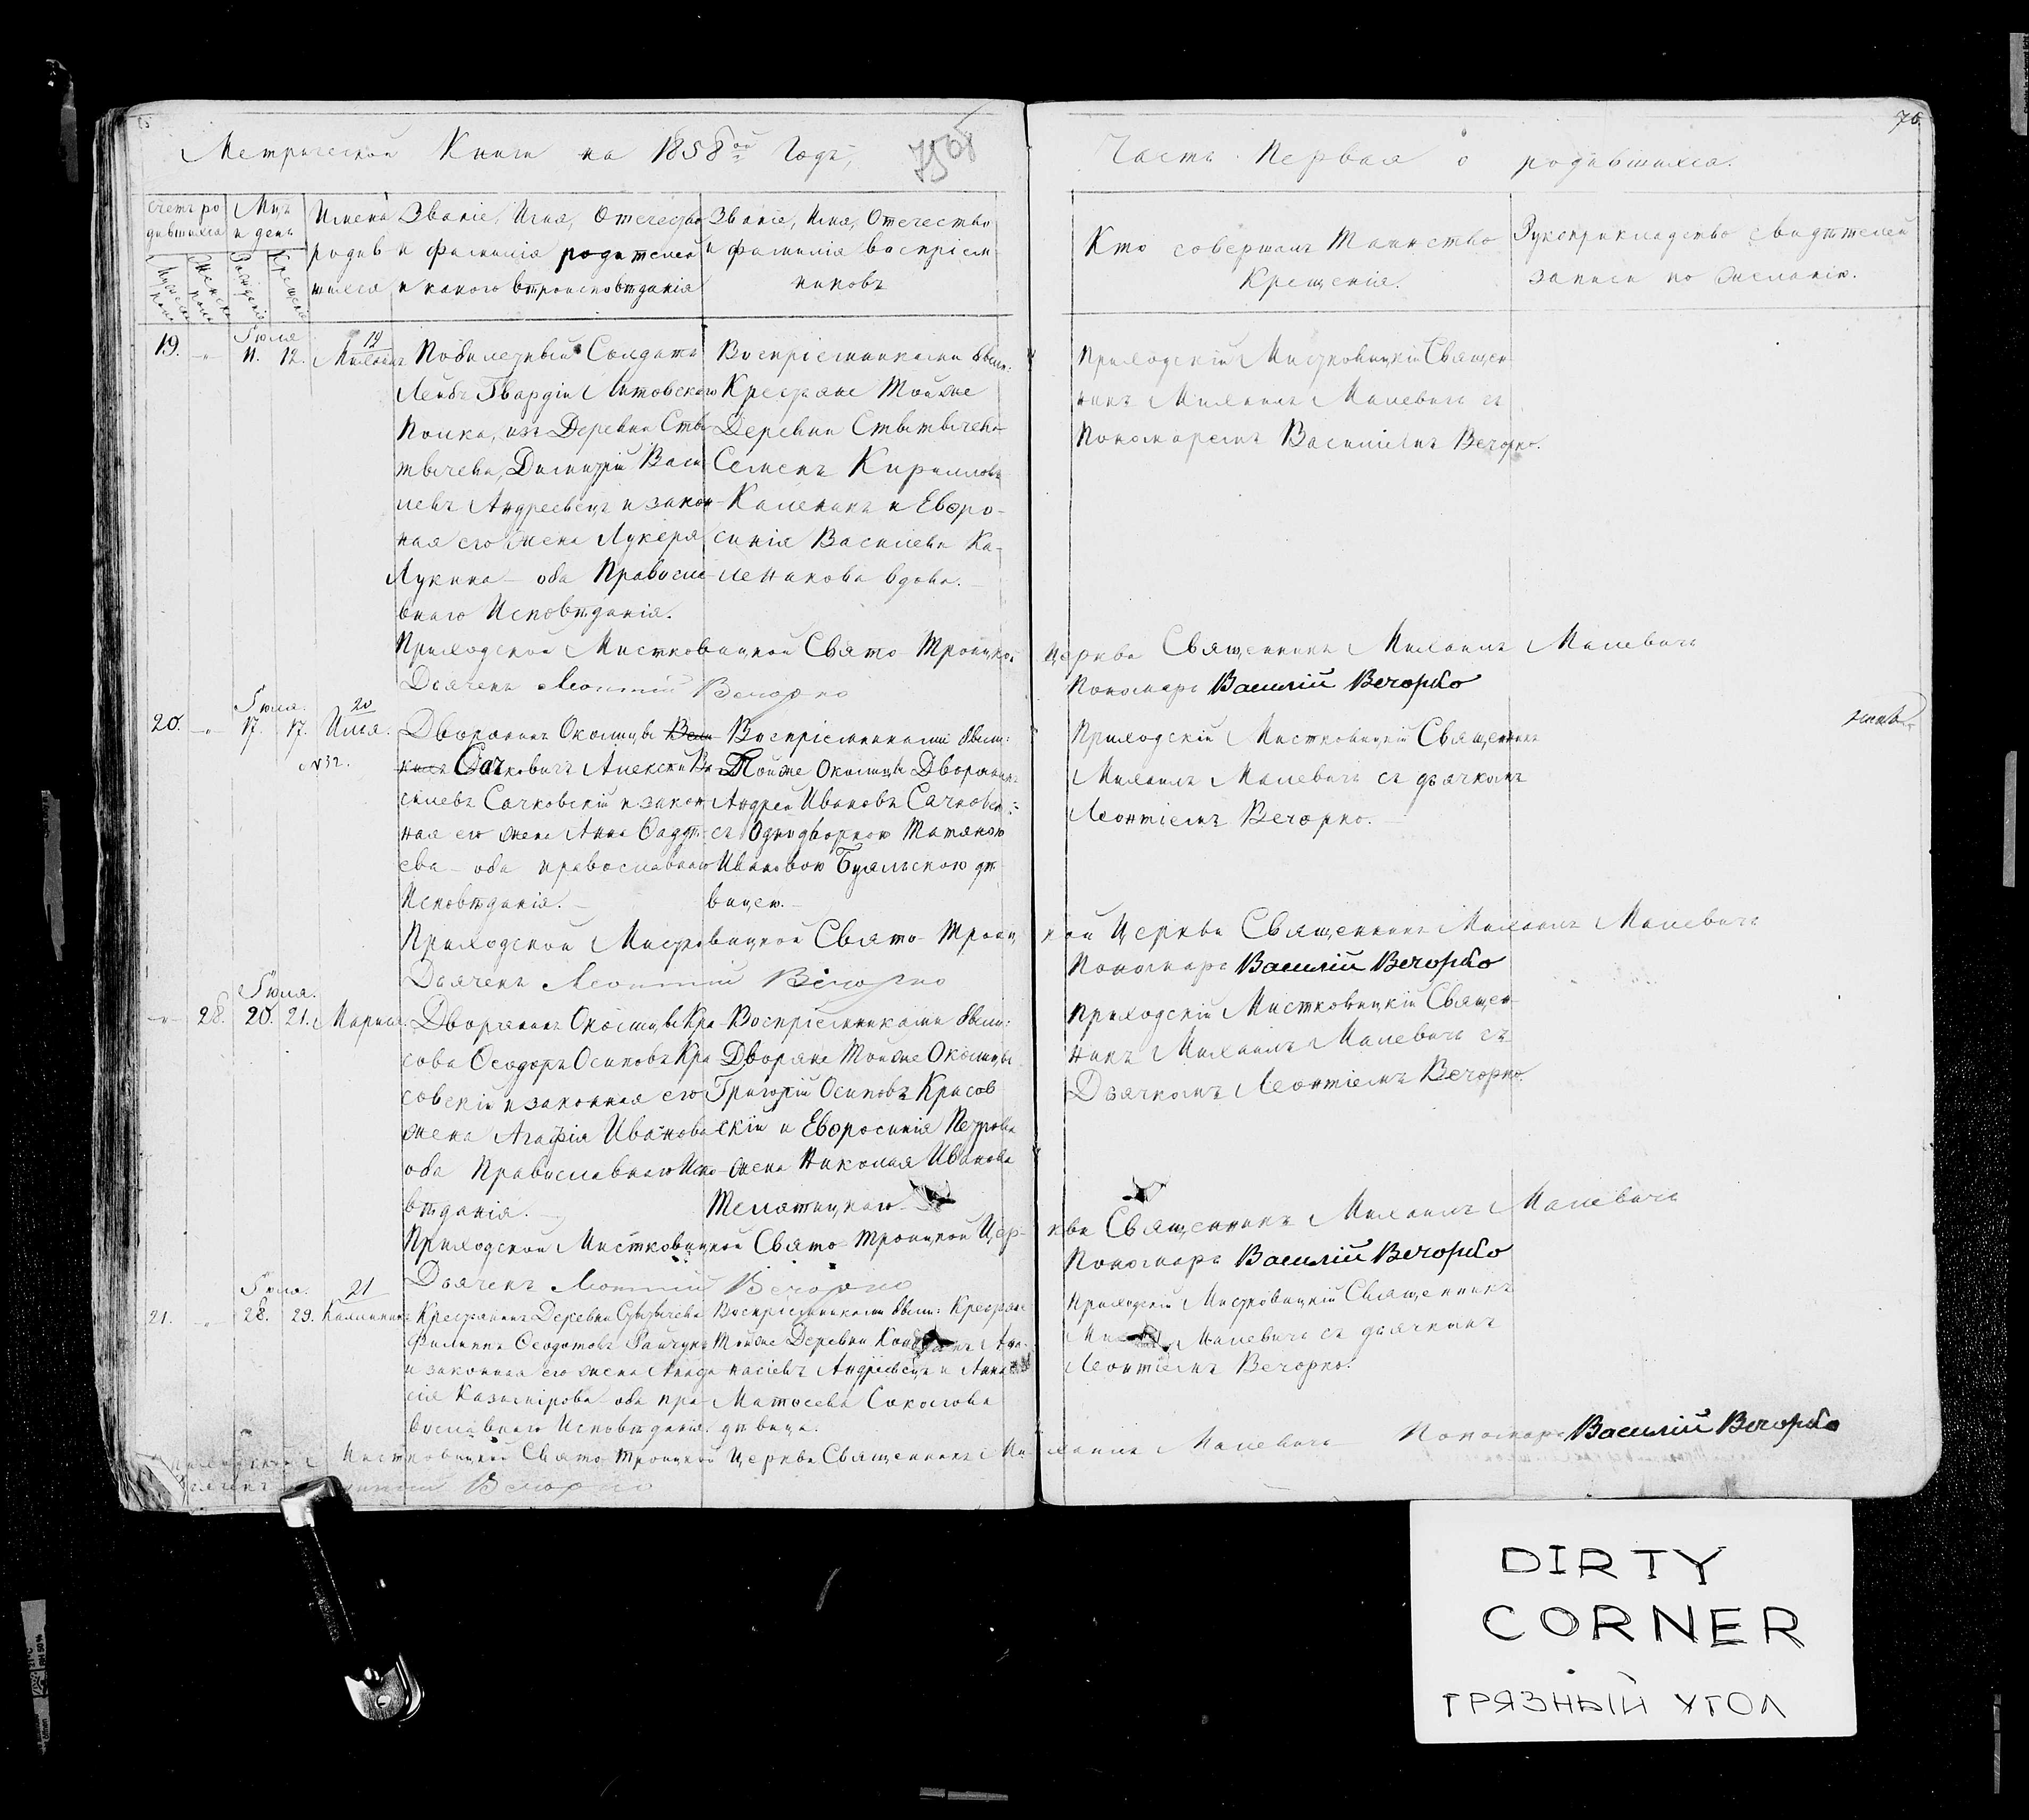 Метрической Книги на 1858ой Годъ,
Часть Первая о родившихся.
76
Счетъ ро
дившихся
Мцъ
и день
Имена
родив
шихся
Званіе, Имя, Отчество
и фамилія родителей
и какого вѣроисповѣданія
Званіе, Имя, Отчество
и фамилія воспріем
никовъ
Кто совершалъ Таинство
Крещенія.
Рукоприкладство свидѣтелей
записи по желанію.
Мужеска
пола
Женска
пола
Рожденіе
Крещеніе
19.
Іюля
11. 12.
19
Михаилъ
Побилетный Солдатъ
Лейбъ Гвардіи Литовскаго
Полка, изъ Деревни Сты
тычева, Димитрій Васи
левъ Андреевецъ и закон
ная его жена Лукеря
Лукина – оба Правосла
внаго Исповѣданія.
Воспріемниками были:
Крестяне Тойже
Деревни Стытычева
Семенъ Кирилловъ
Каленикъ и Евфро-
синія Василева Ка-
леникова вдова.
Приходскій Мистковицкій Священ
никъ Михаилъ Малевичъ съ
Пономаремъ Василіемъ Вечорко.
Приходской Мистковицкой Свято Троицкой Церкви Священникъ Михаилъ Малевичъ
Дьячекъ Леонтій Вечорко Пономарь Василій Вечорко
20.
Іюля.
17. 17.
20
Илья.
N 32.
Дворянинъ Околицы
Сачковичъ Алексѣй Ва
силевъ Сачковскій и закон
ная его жена Анна Фадде
ева – оба православнаго
Исповѣданія.
Воспріемниками были:
Тойже Околицы Дворянинъ
Андрей Ивановъ Сачковскій
съ Однодворкою Татяною
Ивановою Буяльскою дѣ
вицею.
Приходскій Мистковицкій Священникъ
Михаилъ Малевичъ съ дьячкомъ
Леонтіемъ Вечорко.
Приходской Мистковицкой Свято Троицкой Церкви Священникъ Михаилъ Малевичъ
Дьячекъ Леонтій Вечорко Пономарь Василій Вечорко
28.
Іюля.
20. 21.
Марія.
Дворянинъ Околицы Кра
сова Феодоръ Осиповъ Кра
совскій и законная его
жена Агафія Иванова
оба Православнаго Испо
вѣданія.
Воспріемниками были:
Дворяне Тойже Околицы
Григорій Осиповъ Красов
скій и Евфросинія Петрова
жена Николая Иванова
Телятицкаго.
Приходскій Мистковицкій Священ
никъ Михаилъ Малевичъ съ
Дьячкомъ Леонтіемъ Вечорко.
Приходской Мистковицкой Свято Троицкой Церкви Священникъ Михаилъ Малевичъ
Дьячекъ Леонтій Вечорко Пономарь Василій Вечорко
21.
Іюля.
28. 29.
21
Каллиникъ
Крестянинъ Деревни Стытычева
Филиппъ Феодотовъ
и законная его жена
Казимірова оба пра
вославнаго Исповѣданія.
Воспріемниками были: Крестяне
Тойже Деревни
Андреевецъ и Анна
Матфеева Соколова
дѣвица.
Приходскій Мистковицкій Священникъ
Малевичъ съ дьячкомъ
Леонтіемъ Вечорко.
Мистковицкой Свято Троицкой Церкви Священникъ Михаилъ Малевичъ Пономарь Василій Вечорко
Вечорко
DIRTY
CORNER
ГРЯЗНЫЙ УГОЛ